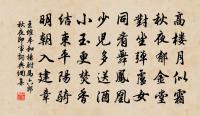 高樓月似霜
秋夜郁金堂
對坐彈盧女
同看舞鳳凰
少兒多送酒
小玉更焚香
結束平陽騎
明朝入建章
王維奉和楊駙馬六郎
秋夜即事詞典網集